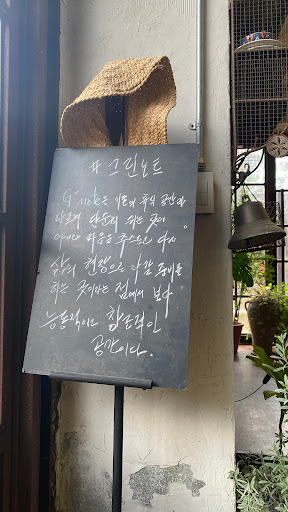 # 그린노트
G'note는 기존의 휴식 공간과
다르게 단순히 쉬는 곳이
아니라 마음을 추스르고 다시
삶의 현장으로 나갈 준비를
하는 곳이라는 점에서 보다
능동적이고 참조적인
공간이다.